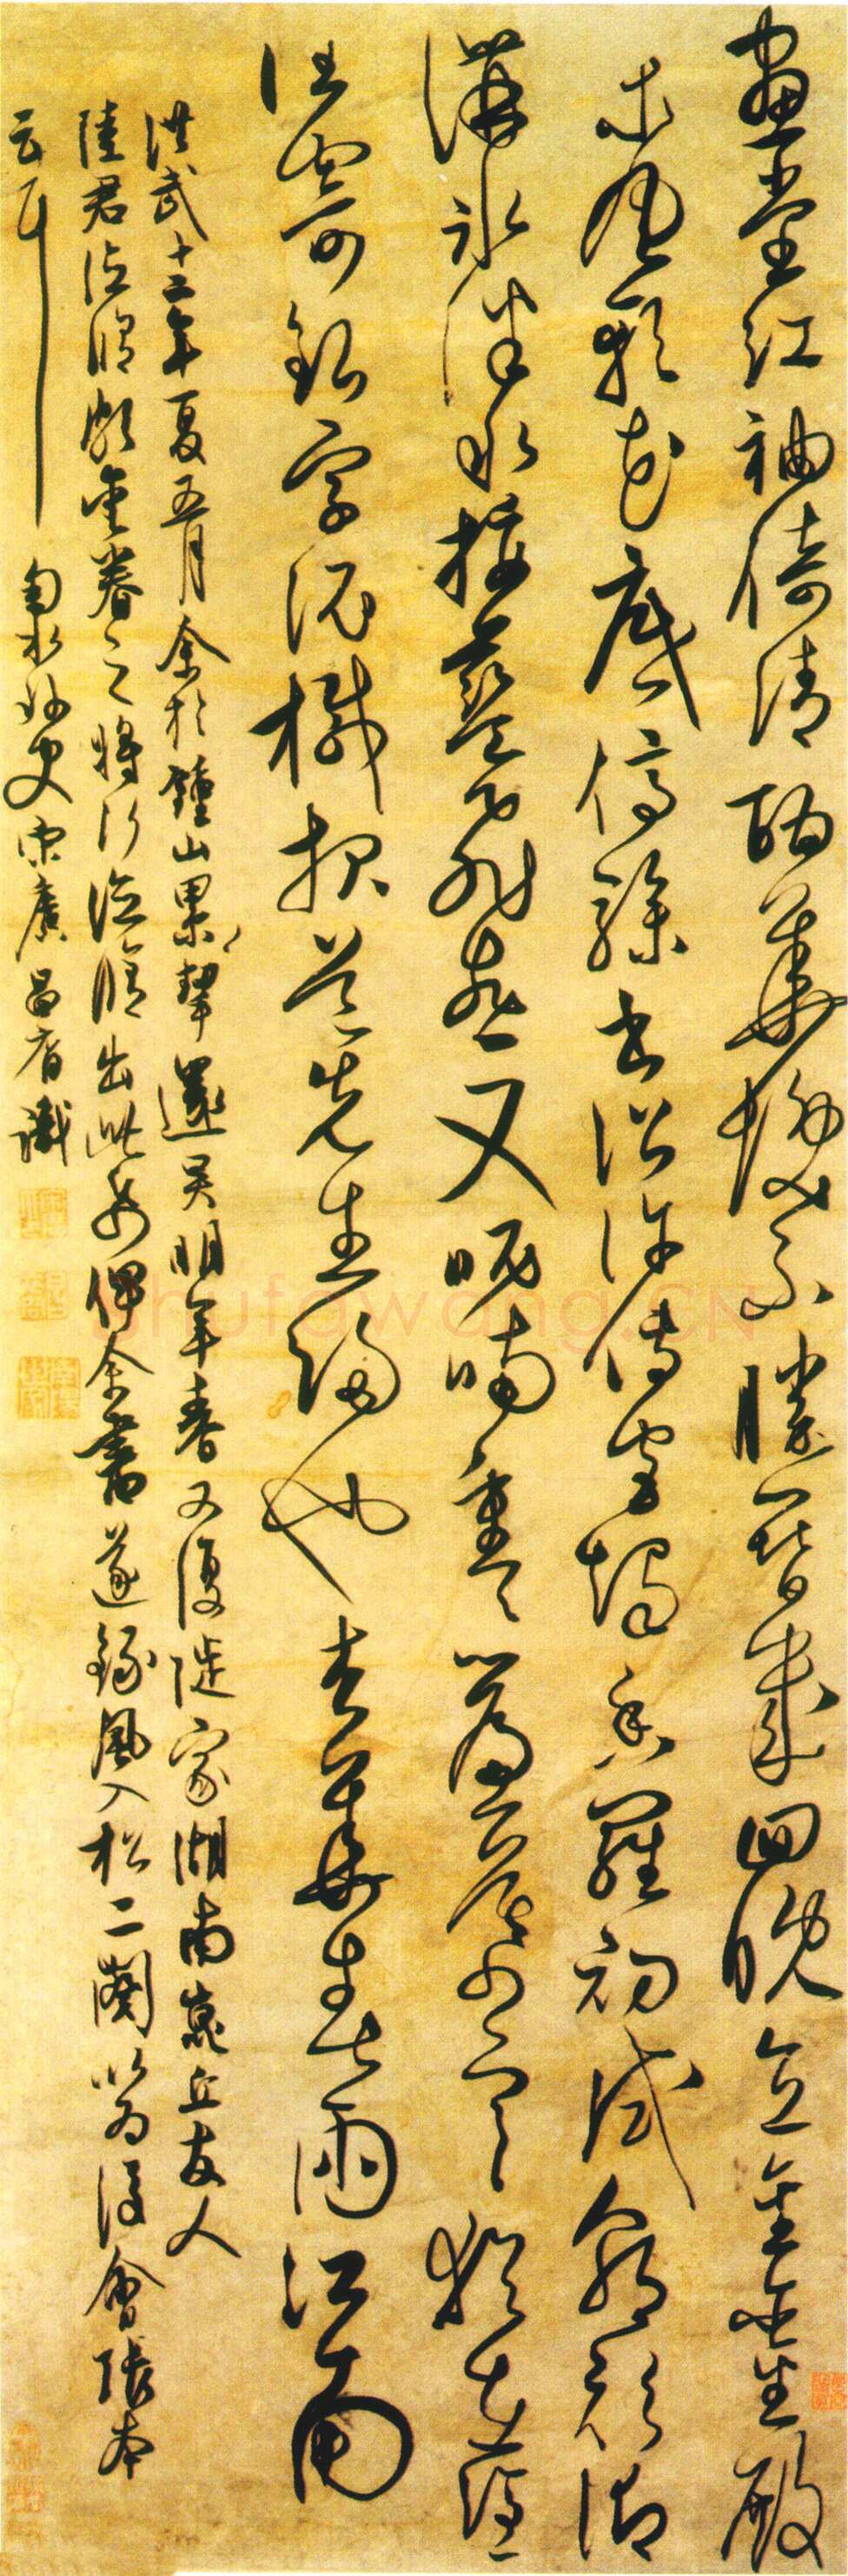 畫堂紅袖倚清酣華髮不勝簪幾回晚直金鑾殿
東風軟花底停驂書詔許傳宮燭香羅初試朝衫御
溝冰泮水挼藍飛燕又呢喃重重簾幕寒猶在憑
誰寄銀字泥緘報道先生歸也杏花春雨江南
洪武十二年夏五月余於鍾山累挈還吳明年春又復徙家湖南嵩丘友人
陸君德脩頗重眷之將行德脩出此紙俾余書遂錄風入松二闋以為後會張本
云耳 外史宋廣昌裔識
Shufawang.CN